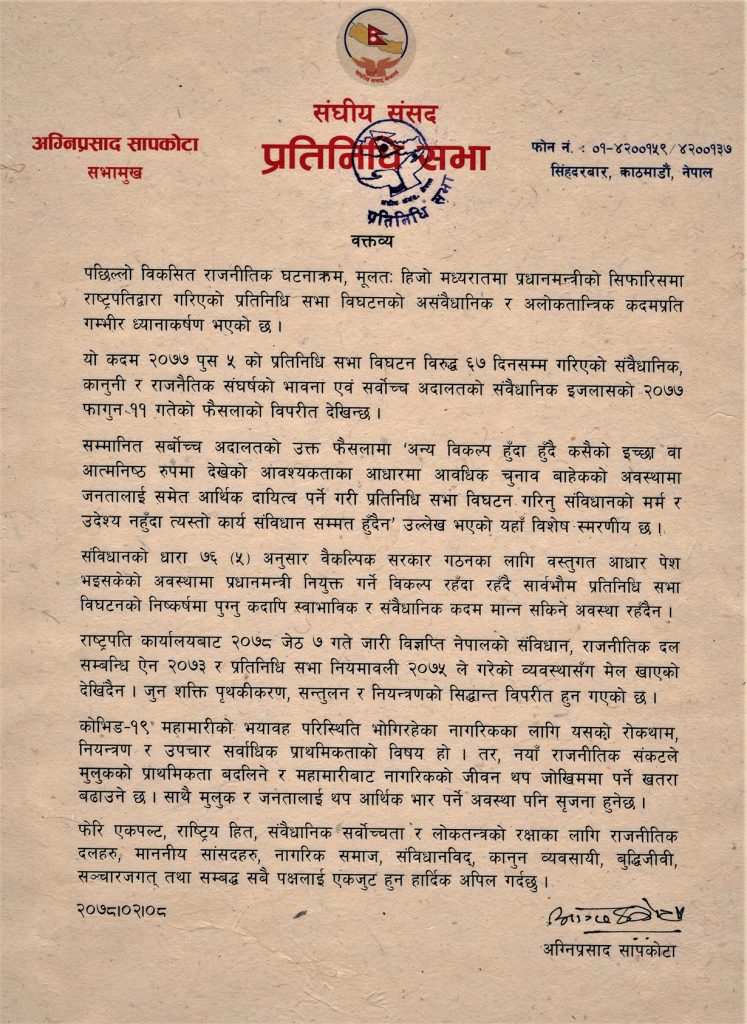 संघीय संसद नेपाल
संघीय संसद
प्रतिनिधि सभा
अग्निप्रसाद सापकोटा
सभामुख
फोन नं. : ०१-४२००१५९/४२००१३७
सिंहदरबार, काठमाडौं, नेपाल
संघीय संसद, नेपाल
प्रतिनिधि सभा
वक्तव्य
पछिल्लो विकसित राजनीतिक घटनाक्रम, मूलतः हिजो मध्यरातमा प्रधानमन्त्रीको सिफारिसमा
राष्ट्रपतिद्वारा गरिएको प्रतिनिधि सभा विघटनको असंवैधानिक र अलोकतान्त्रिक कदमप्रति
गम्भीर ध्यानाकर्षण भएको छ ।
यो कदम २०७७ पुस ५ को प्रतिनिधि सभा विघटन विरुद्ध ६७ दिनसम्म गरिएको संवैधानिक,
कानुनी र राजनैतिक संघर्षको भावना एवं सर्वोच्च अदालतको संवैधानिक इजलासको २०७७
फागुन ११ गतेको फैसलाको विपरीत देखिन्छ ।
सम्मानित सर्वोच्च अदालतको उक्त फैसलामा ‘अन्य विकल्प हुँदा हुँदै कसैको इच्छा वा
आत्मनिष्ठ रुपमा देखेको आवश्यकताका आधारमा आवधिक चुनाव बाहेकको अवस्थामा
जनतालाई समेत आर्थिक दायित्व पर्ने गरी प्रतिनिधि सभा विघटन गरिनु संविधानको मर्म र
उदेश्य नहुँदा त्यस्तो कार्य संविधान सम्मत हुँदैन’ उल्लेख भएको यहाँ विशेष स्मरणीय छ ।
संविधानको धारा ७६ (५) अनुसार वैकल्पिक सरकार गठनका लागि वस्तुगत आधार पेश
भइसकेको अवस्थामा प्रधानमन्त्री नियुक्त गर्ने विकल्प रहँदा रहँदै सार्वभौम प्रतिनिधि सभा
विघटनको निष्कर्षमा पुग्नु कदापि स्वाभाविक र संवैधानिक कदम मान्न सकिने अवस्था रहँदैन ।
राष्ट्रपति कार्यालयबाट २०७८ जेठ ७ गते जारी विज्ञप्ति नेपालको संविधान, राजनीतिक दल
सम्बन्धि ऐन २०७३ र प्रतिनिधि सभा नियमावली २०७५ ले गरेको व्यवस्थासँग मेल खाएको
देखिंदैन । जुन शक्ति पृथकीकरण, सन्तुलन र नियन्त्रणको सिद्धान्त विपरीत हुन गएको छ ।
कोभिड-१९ महामारीको भयावह परिस्थिति भोगिरहेका नागरिकका लागि यसको रोकथाम,
नियन्त्रण र उपचार सर्वाधिक प्राथमिकताको विषय हो । तर, नयाँ राजनीतिक संकटले
मुलुकको प्राथमिकता बदलिने र महामारीबाट नागरिकको जीवन थप जोखिममा पर्ने खतरा
बढाउने छ । साथै मुलुक र जनतालाई थप आर्थिक भार पर्ने अवस्था पनि सृजना हुनेछ ।
फेरि एकपल्ट, राष्ट्रिय हित, संवैधानिक सर्वोच्चता र लोकतन्त्रको रक्षाका लागि राजनीतिक
दलहरु, माननीय सांसदहरु, नागरिक समाज, संविधानविद्, कानुन व्यवसायी, बुद्धिजीवी,
सञ्चारजगत् तथा सम्बद्ध सबै पक्षलाई एकजुट हुन हार्दिक अपिल गर्दछु ।
२०७८।०२।०८
अग्निप्रसाद सापकोटा